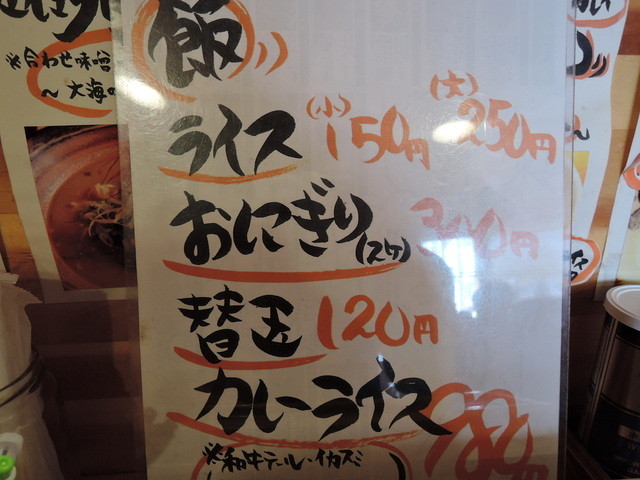 飯
ライス (小)150円 (大)250円
おにぎり(スケ) 300円
替玉 120円
カレーライス 980円
※和牛テール・イカスミ
※合わせ味噌
～大海の